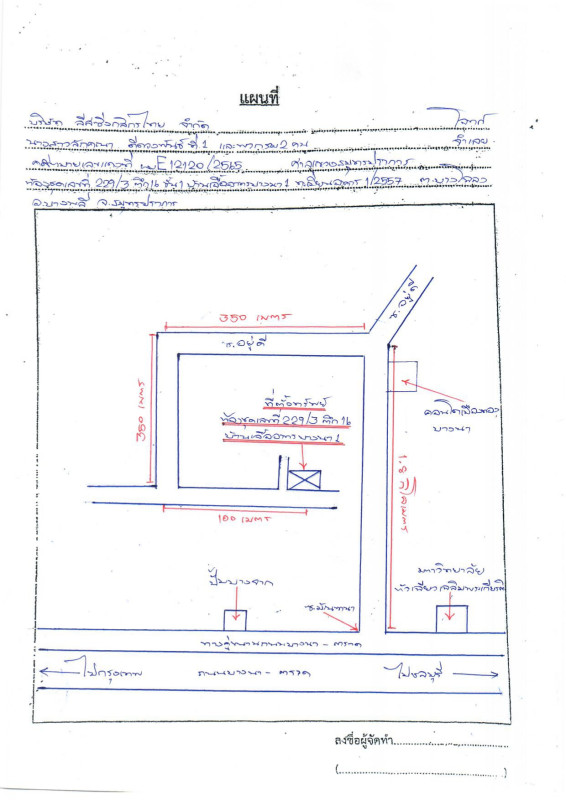 แผนที่
บริษัท ลีสซิ่งกสิกรไทย จำกัด โจทก์
ที่ 1 และพวกรวม 2 คน จำเลย
คดีหมายเลขแดงที่ ผบE12120/2565 ศาลจังหวัดสมุทรปราการ
ห้องชุดเลขที่ 229/3 ตึก 16 ชั้น 1 บ้านเอื้ออาทรบางนา 1 ทะเบียนอาคาร 1/2557 ต.บางโฉลง
อ.บางพลี จ.สมุทรปราการ
350 เมตร
ซ.อยู่ดี
ซ.อยู่ดี
ที่ตั้งทรัพย์
ห้องชุดเลขที่ 229/3 ตึก 16
บ้านเอื้ออาทรบางนา 1
350 เมตร
คอนโดเมืองทอง
บางนา
1.8 กิโลเมตร
100 เมตร
มหาวิทยาลัย
หัวเฉียวเฉลิมพระเกียรติ
ปั๊มบางจาก
ซ.มัณฑนา
ทางคู่ขนานถนนบางนา - ตราด
ไปกรุงเทพ ถนนบางนา - ตราด ไปชลบุรี
ลงชื่อผู้จัดทำ
(....................)